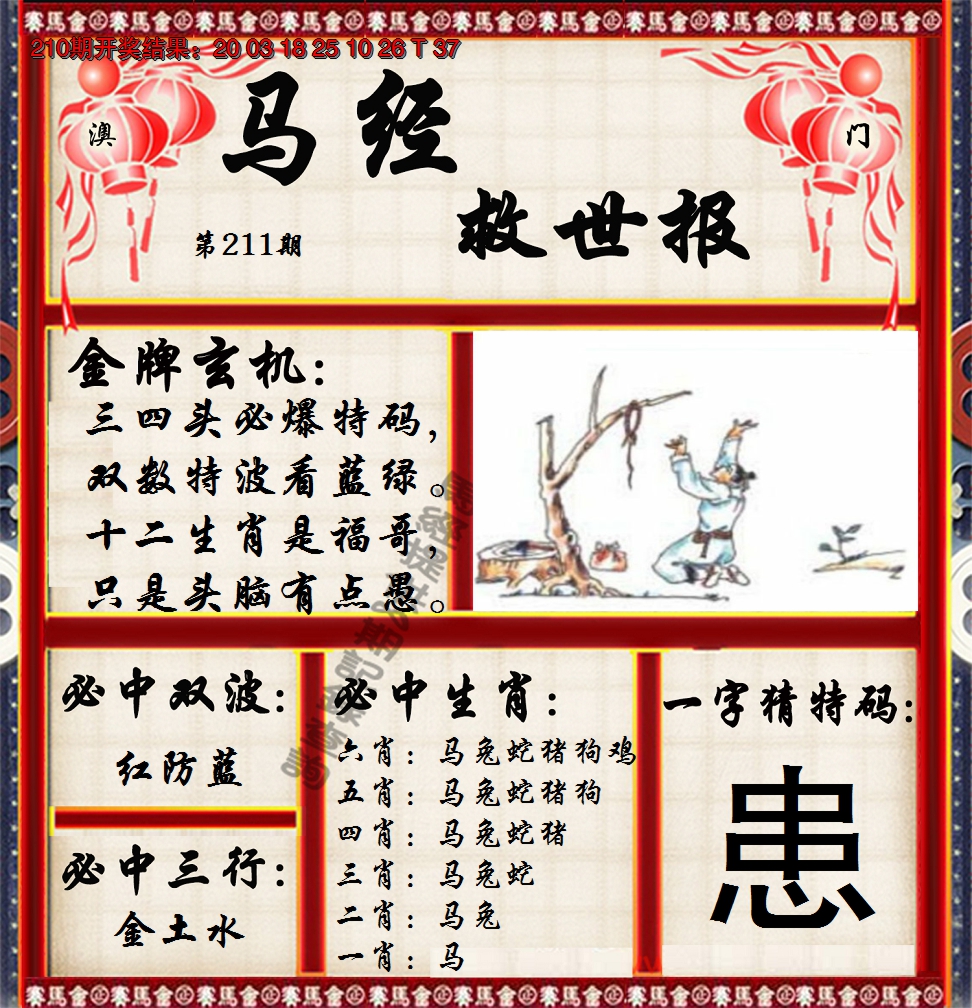 赛馬会㊣赛馬会㊣赛馬会㊣赛馬会㊣赛馬会㊣赛馬会㊣
210期开奖结果：20 03 18 25 10 26 T 37
澳
门
马经
救世报
第211期
金牌玄机：
三四头必爆特码，
双数特波看蓝绿。
十二生肖是福哥，
只是头脑有点愚。
必中双波：
红防蓝
必中三行：
金土水
必中生肖：
六肖：马兔蛇猪狗鸡
五肖：马兔蛇猪狗
四肖：马兔蛇猪
三肖：马兔蛇
二肖：马兔
一肖：马
一字猜特码：
患